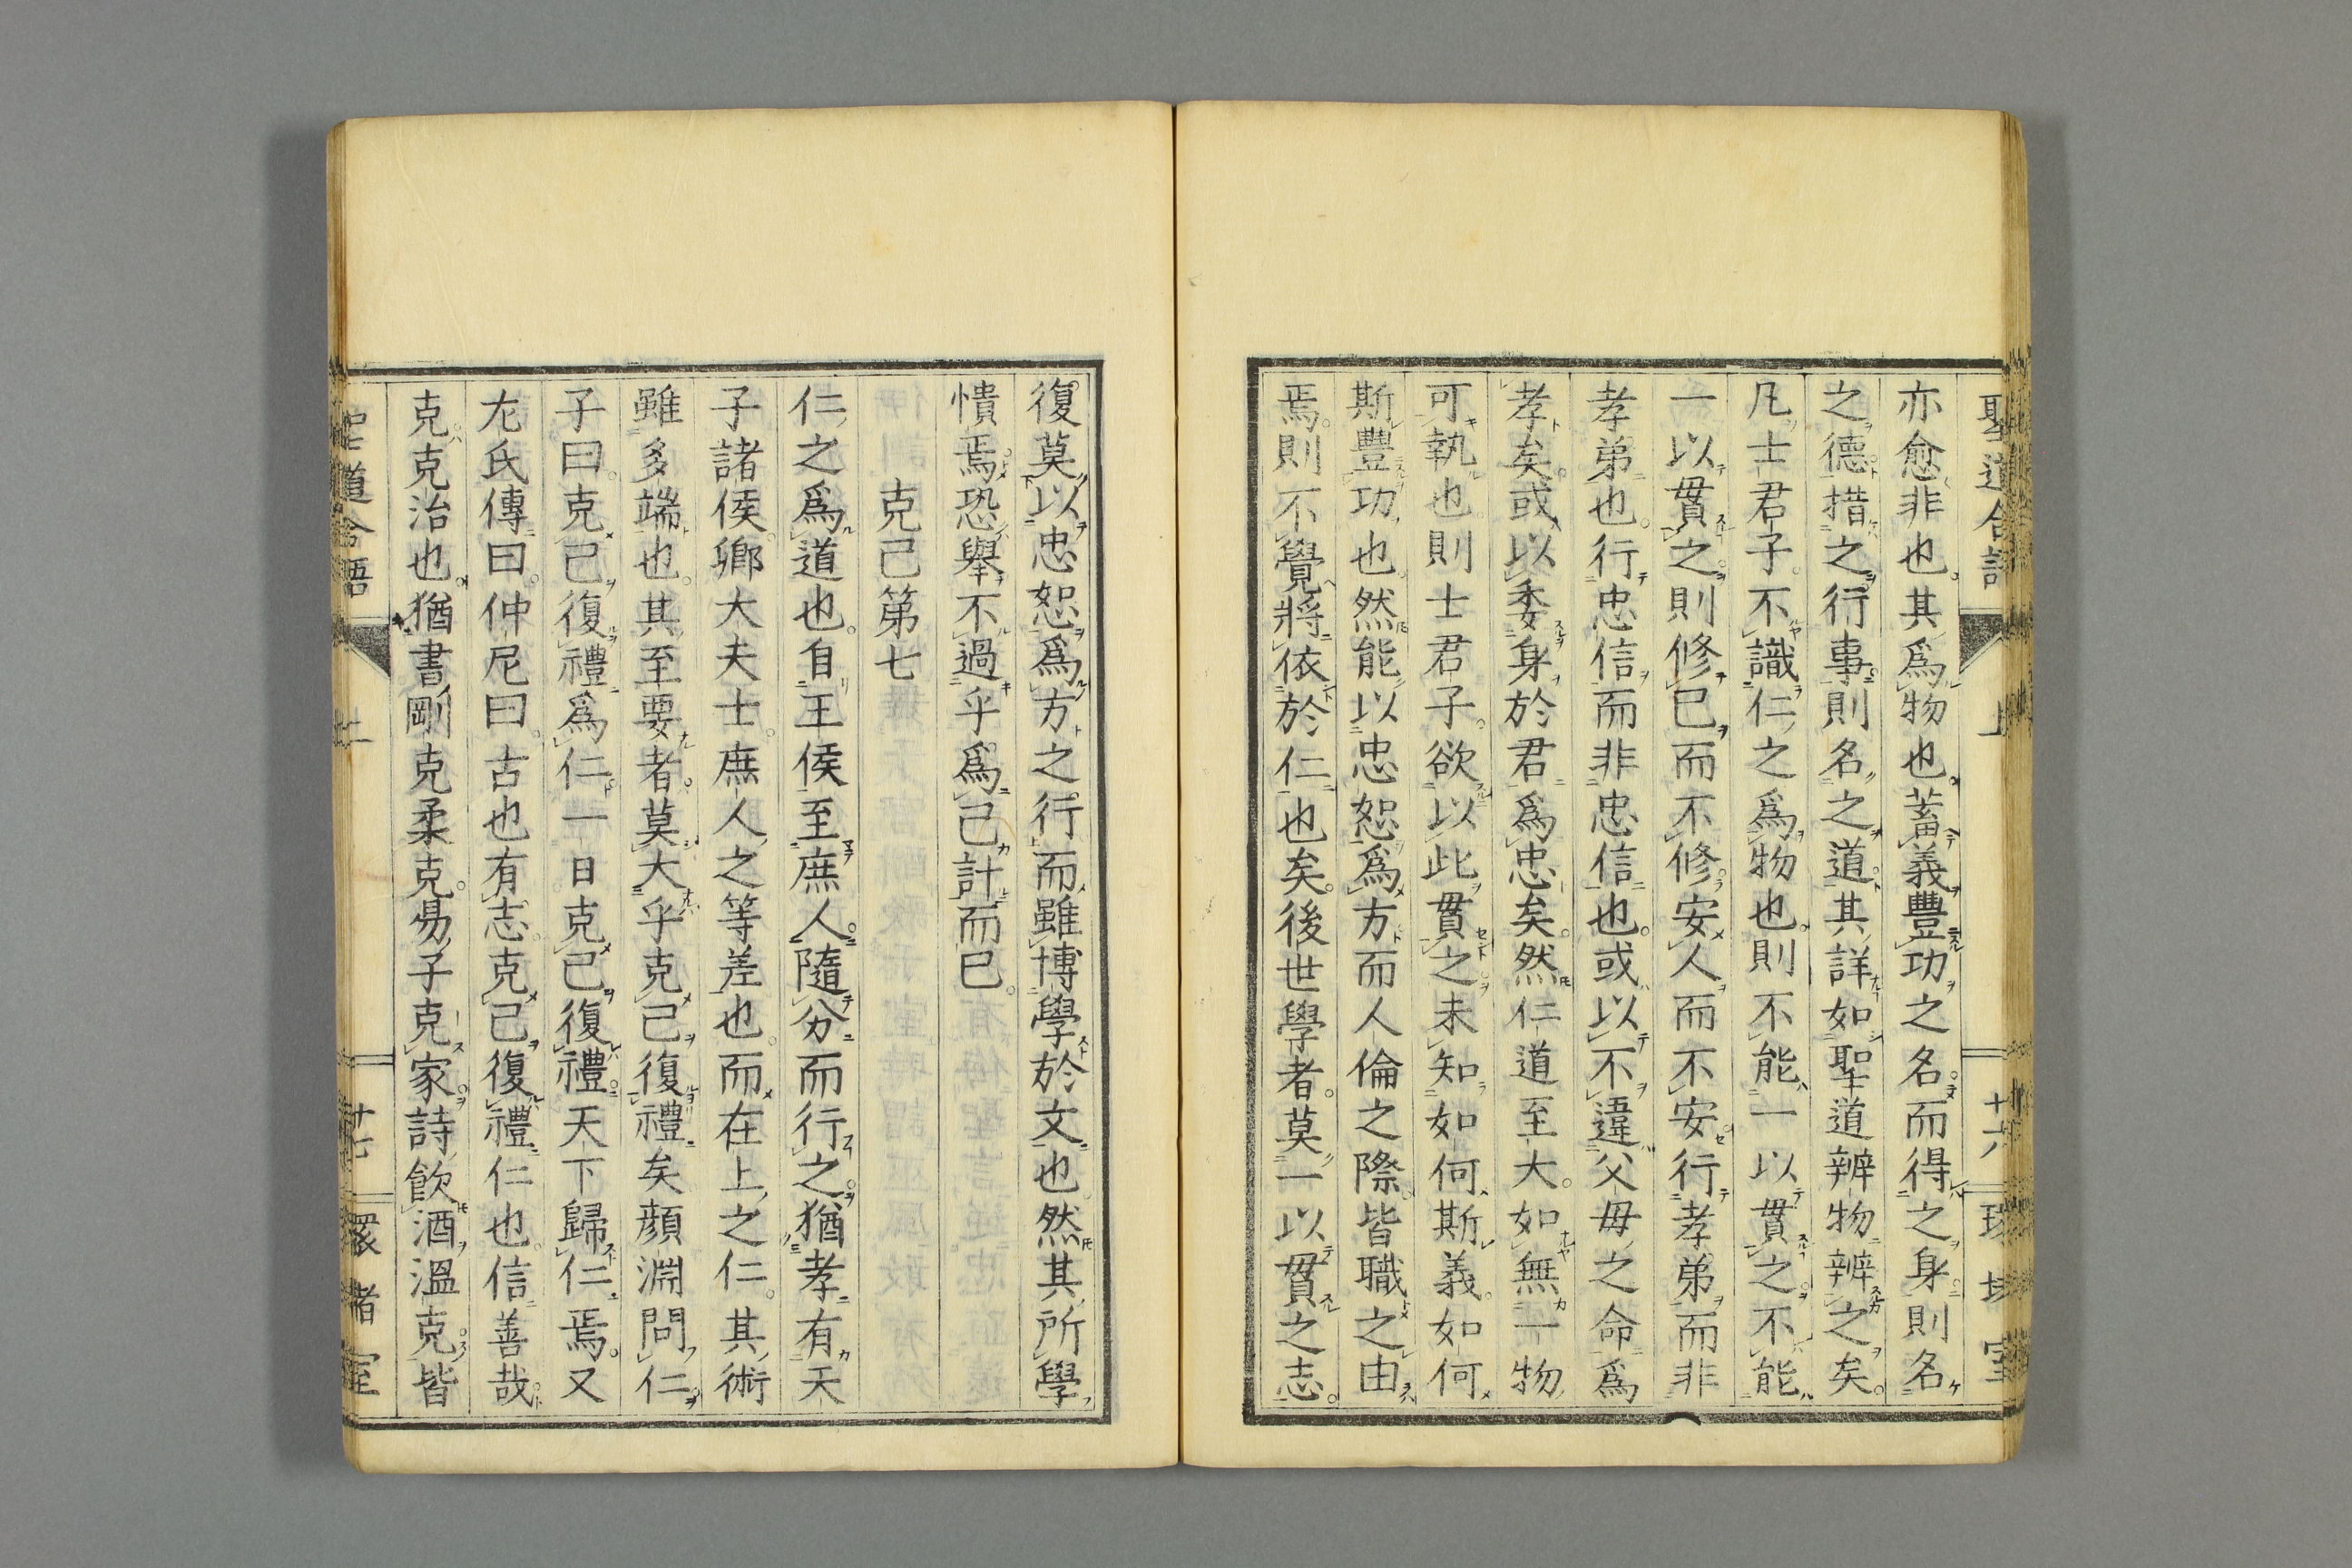 亦愈非也其爲物也蓄義豐功之名而得之身則名
之德措之行事則名之道其詳如聖道辨物辨之矣
凡士君子不識仁之爲物也則不能一以貫之不能
一以貫之則修己而不修安人而不安行孝弟而非
孝弟也行忠信而非忠信也或以不違父母之命爲
孝矣或以委身於君爲忠矣然仁道至大如無一物
可執也則士君子欲以此貫之未知如何斯義如何
斯豐功也然能以忠恕爲方而人倫之際皆職之由
焉則不覺將依於仁也矣後世學者莫一以貫之志
復莫以忠恕爲方之行而雖博學於文也然其所學
憒焉恐舉不過乎爲己計而已
克己第七
仁之爲道也自王侯至庶人隨分而行之猶孝有天
子諸侯卿大夫士庶人之等差也而在上之仁其術
雖多端也其至要者莫大乎克己復禮矣顏淵問仁
子曰克己復禮爲仁一日克己復禮天下歸仁焉又
尤氏傳曰仲尼曰古也有志克己復禮仁也信善哉
克克治也猶書剛克柔克易子克家詩飲酒溫克皆